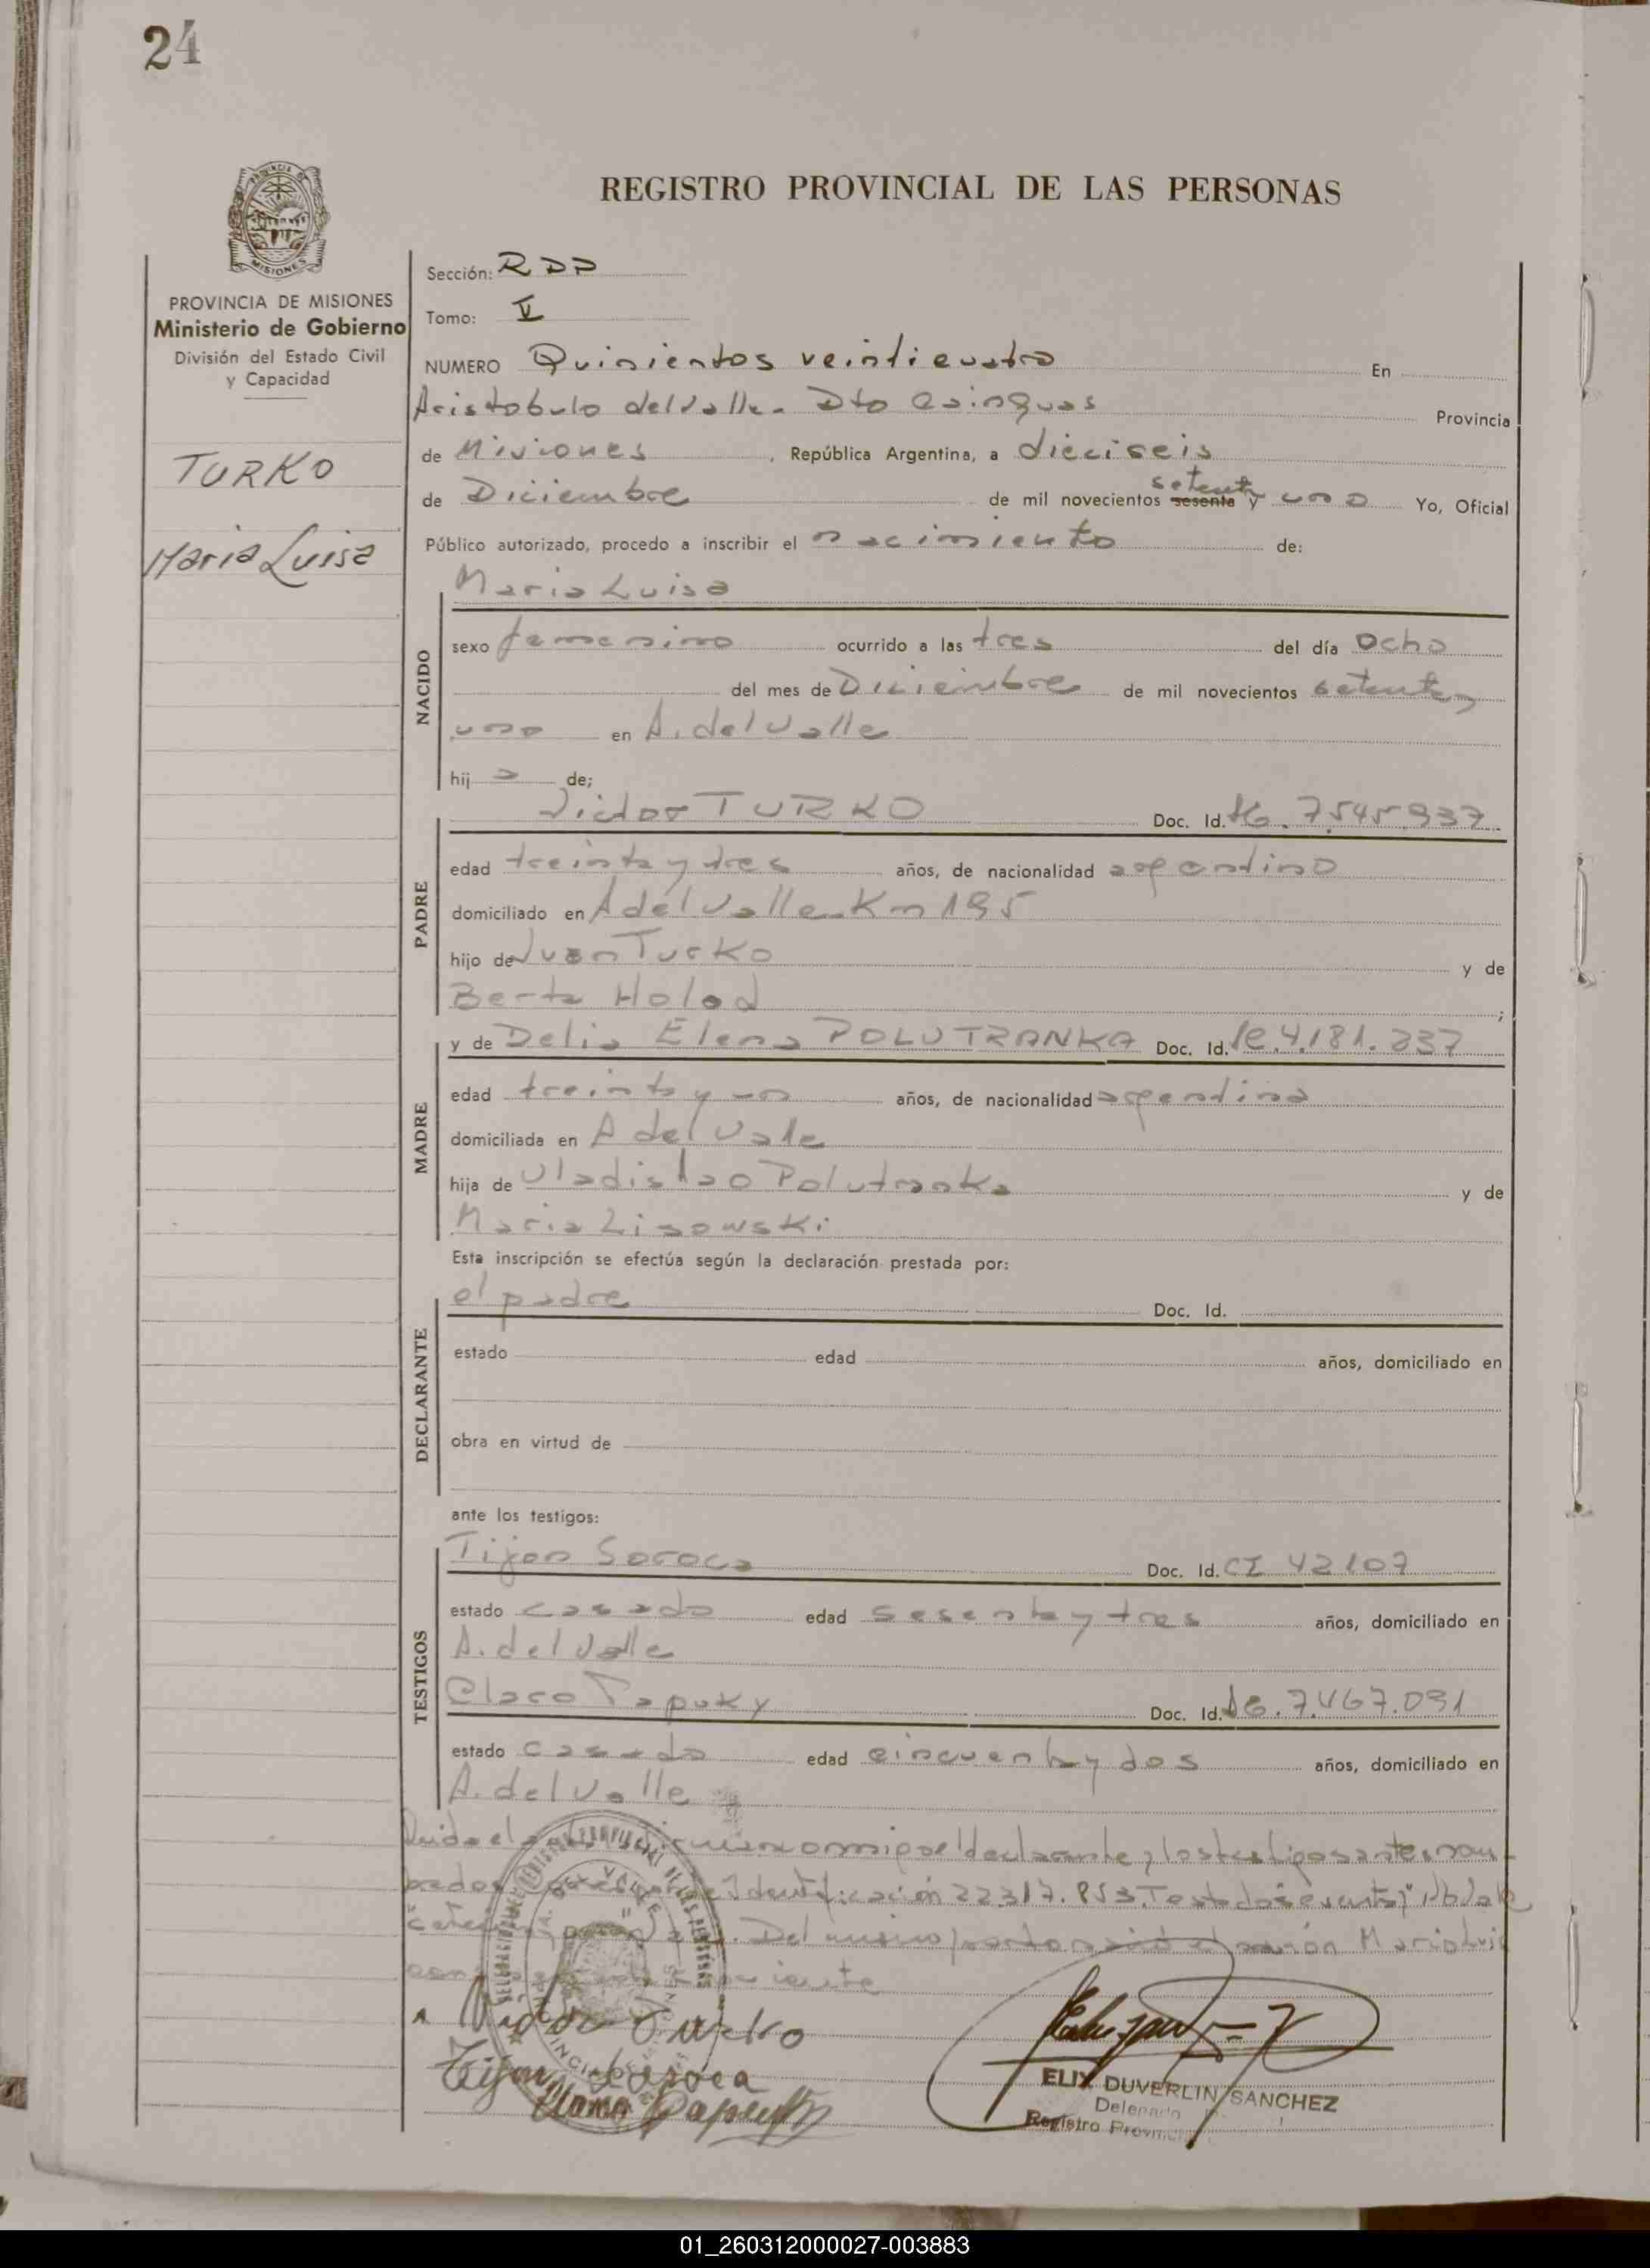 24
REGISTRO PROVINCIAL DE LAS PERSONAS
PROVINCIA DE MISIONES
Ministerio de Gobierno
División del Estado Civil
y Capacidad
TURKO
Maria Luisa
Sección:
Tomo: V
NUMERO Quinientos veinticuatro En
Aristobulo del Valle. Dto Cainguas Provincia
de Misiones, República Argentina, a dieciseis
setenta
de Diciembre de mil novecientos sesenta y uno Yo, Oficial
Público autorizado, procedo a inscribir el nacimiento de:
Maria Luisa
NACIDO
sexo femenino ocurrido a las tres del día ocho
del mes de Diciembre de mil novecientos setenta y
uno en A. del Valle
hij a de;
PADRE
Victor TURKO Doc. Id. 7.545.937
edad treinta y tres años, de nacionalidad argentino
domiciliado en A del Valle Km 195
hijo de Juan Turko y de
Berta Holod ;
MADRE
y de Delia Elena POLUTRANKA Doc. Id. 4.181.237
edad treinta y un años, de nacionalidad argentina
domiciliada en A del Vale
hija de Uladislao Polutranka y de
Maria Lisowski
Esta inscripción se efectúa según la declaración prestada por:
DECLARANTE
el padre Doc. Id.
estado edad años, domiciliado en
obra en virtud de
ante los testigos:
TESTIGOS
Tijon Soroca Doc. Id. CI 42107
estado casado edad sesenta y tres años, domiciliado en
A. del Valle
Claro Papuky Doc. Id. 7.467.091
estado casado edad cincuenta y dos años, domiciliado en
A. del Valle
el declarante y los testigos antes nom-
brados Identificación 22.317.853. Testado sesenta
Del mismo
ELIX DUVERLIN SANCHEZ
Delegado
Registro Provincial
01_260312000027-003883